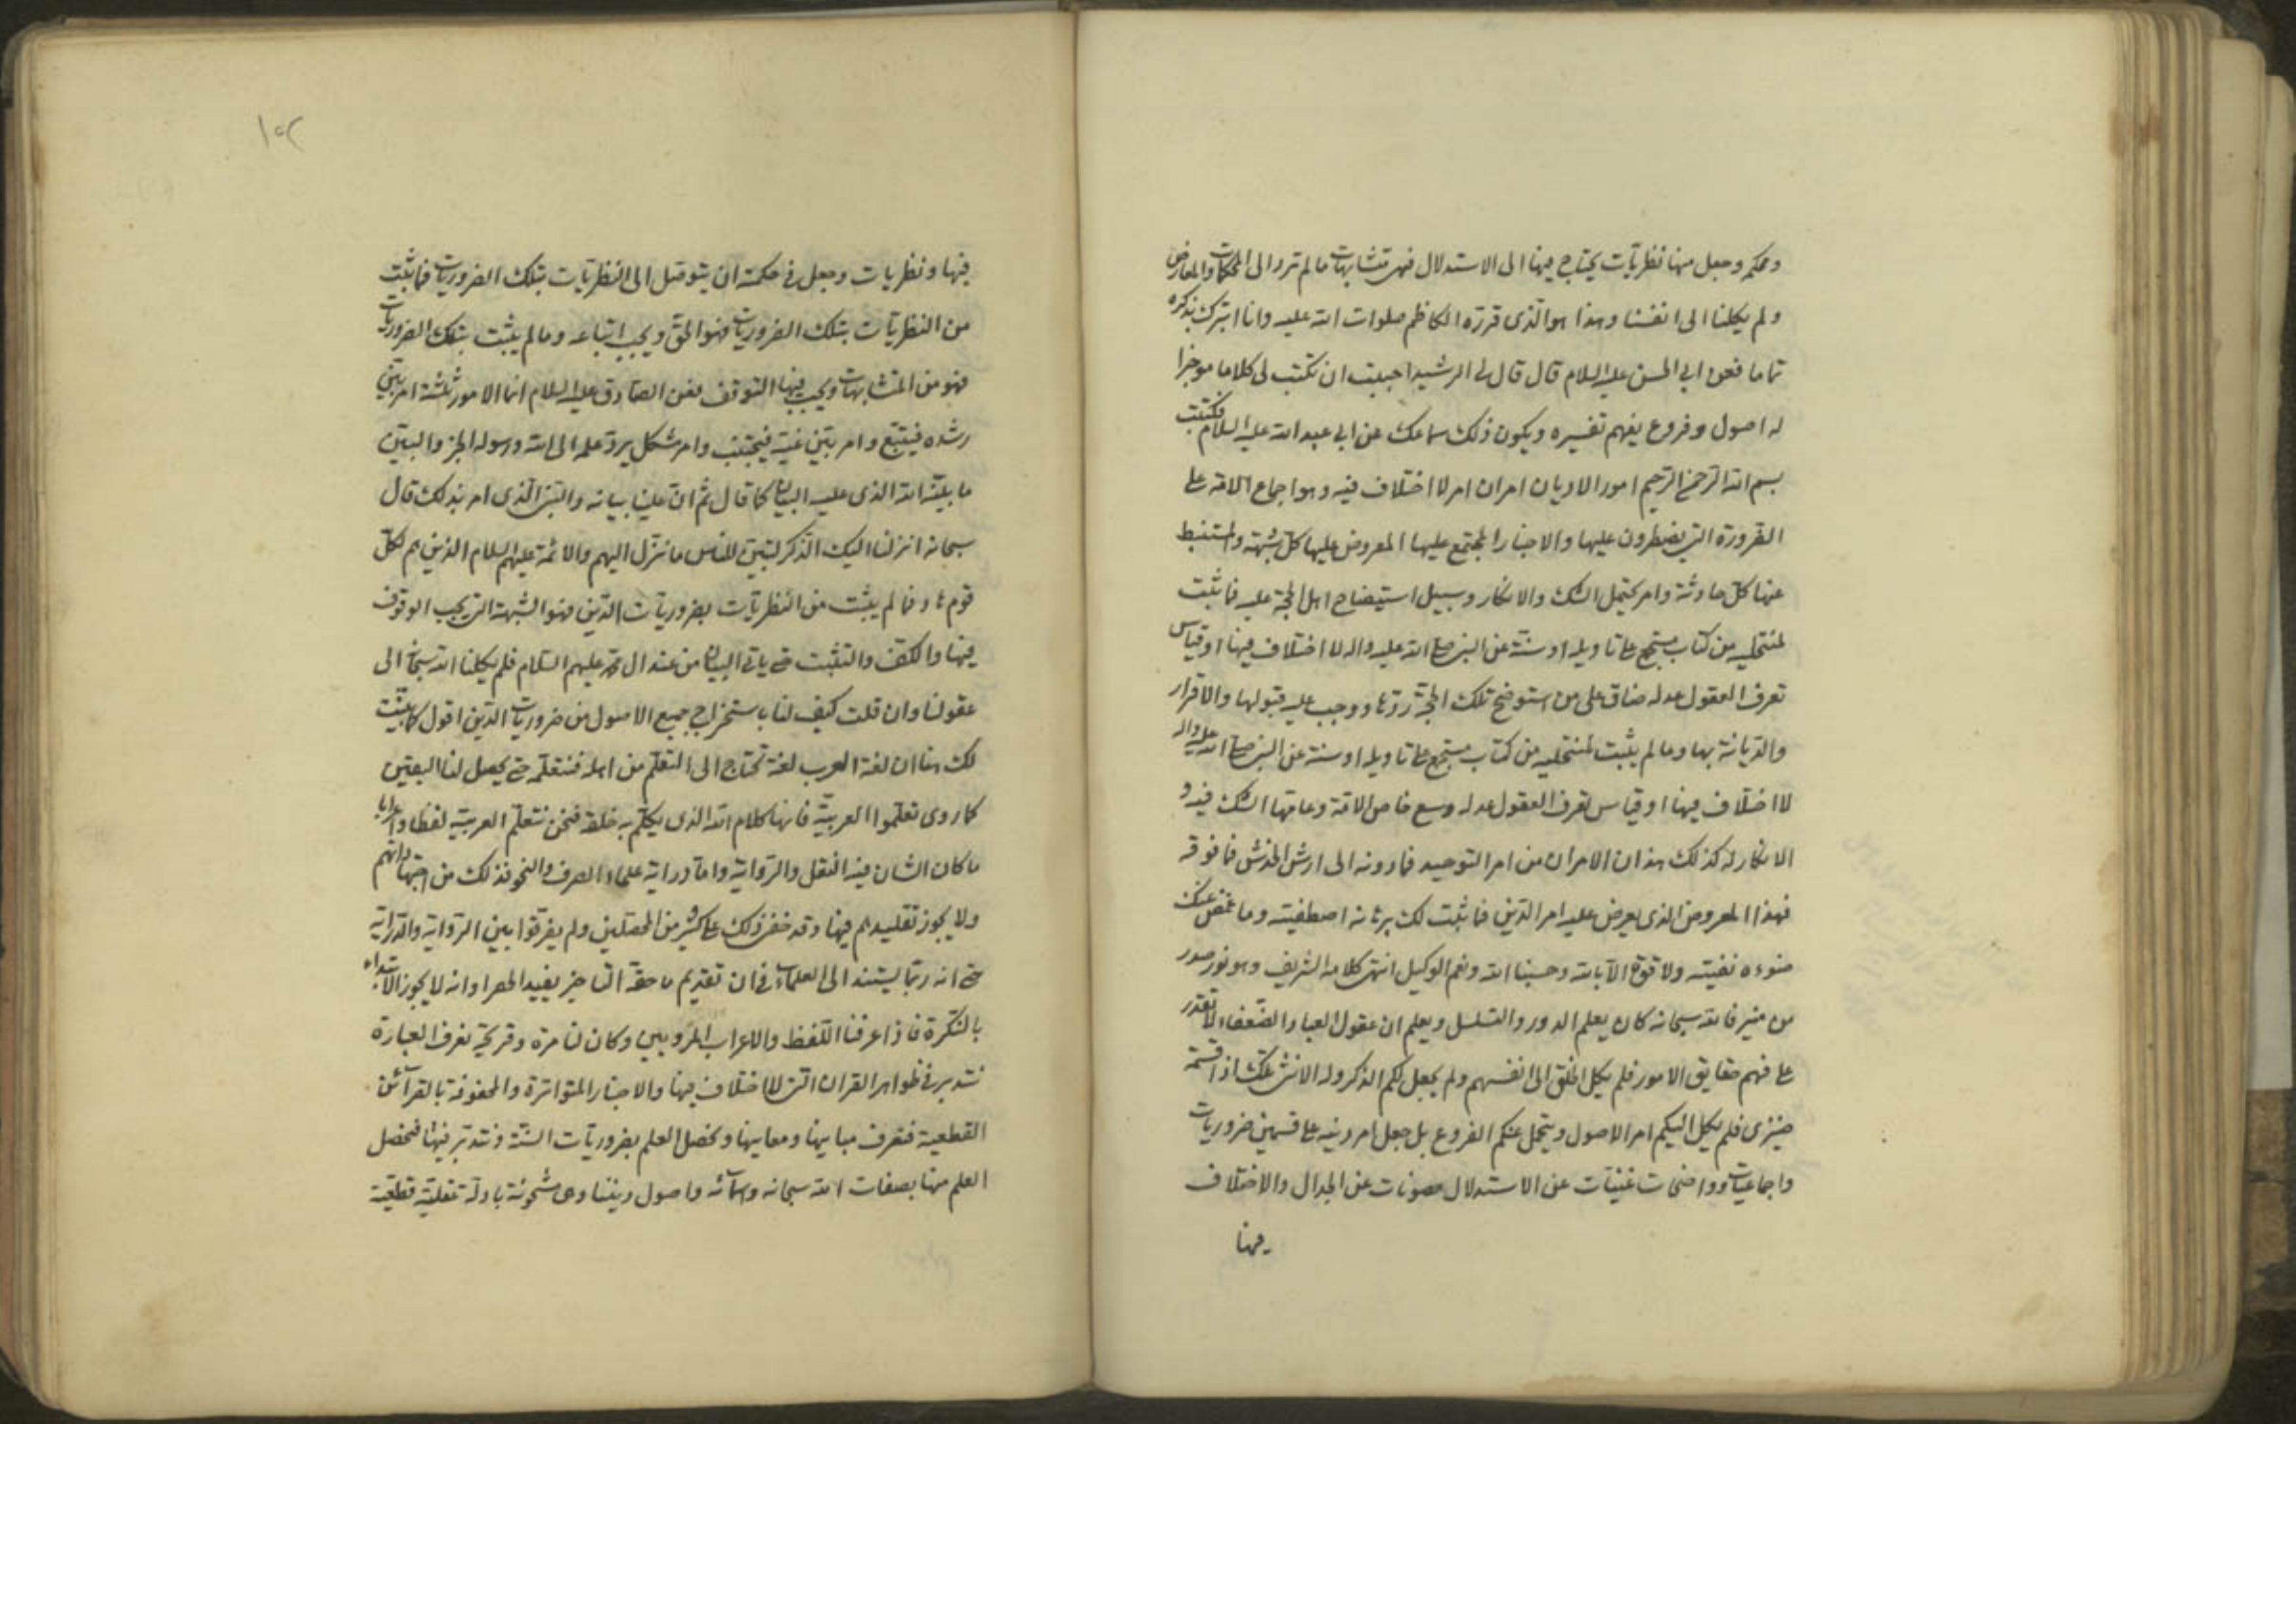 ومحكم وجعل منها نظريّات يحتاج فيها الى الاستدلال فهى متشابهات مالم ترد الى المحكمات والمعارض
ولم يكلنا الى انفسنا وهذا هو الّذى قرّره الكاظم صلوات الله عليه وانا اتبرك بذكره
تماما فعن ابى الحسن عليه السلام قال قال لى الرشيد احببت ان تكتب لى كلاما موجزا
له اصول وفروع يفهم تفسيره ويكون ذلك سماعك عن ابى عبد الله عليه السلام فكتبت
بسم الله الرحمن الرحيم امور الاديان امران امر لا اختلاف فيه وهو اجماع الامة على
الضرورة التى يضطرون عليها والاخبار المجتمع عليها المعروض عليها كلّ شبهة والمستنبط
عنها كلّ حادثة وامر يحتمل الشك والانكار وسبيل استيضاح اهل الحجة عليه فما ثبت
لمنتحليه من كتاب مستجمع على تاويله او سنّة عن النبى صلى الله عليه واله لا اختلاف فيها او قياس
تعرف العقول عدله ضاق على من استوضح تلك الحجّة ردّها ووجب عليه قبولها والاقرار
والدّيانة بها ومالم يثبت لمنتحليه من كتاب مستجمع على تاويله او سنة عن النبى صلى الله عليه واله
لا اختلاف فيها او قياس تعرف العقول عدله وسع خاص الامّة وعامّها الشك فيه و
الانكار له كذلك هذان الامران من امر التوحيد فما دونه الى ارش الخدش فما فوقه
فهذا المعروض الذى يعرض عليه امر الدّين فما ثبت لك برهانه اصطفيته وما غمض عنك
ضوءه نفيته ولا قوّة الّا بالله وحسبنا الله ونعم الوكيل انتهى كلامه الشريف وهو نور صدر
من منير فالله سبحانه كان يعلم الدور والتسلسل ويعلم ان عقول العباد الضّعفاء لا تقدر
على فهم حقايق الامور فلم يكل الخلق الى انفسهم ولم يجعل لكم الذكر وله الانثى تلك اذا قسمة
ضيزى فلم يكل اليكم امر الاصول ويتحمل عنكم الفروع بل جعل امر دينه على قسمين ضروريات
واجماعيات وواضحات غنيّات عن الاستدلال مصونات عن الجدال والاختلاف
فيها
١٠٢
فيها ونظريات وجعل فى حكمته ان يتوصّل الى النظريّات بتلك الضروريات فما ثبت
من النظريّات بتلك الضروريات فهو الحقّ ويجب اتباعه ومالم يثبت بتلك الضروريات
فهو من المتشابهات ويجب فيها التوقف فعن الصّادق عليه السلام انما الامور ثلثة امر بيّن
رشده فيتّبع وامر بيّن غيّه فيجتنب وامر مشكل يردّ علمه الى الله ورسوله الخبر والبيّن
ما بيّنه الله الذى عليه البيان كما قال ثمّ انّ علينا بيانه والنبىّ الّذى امر بذلك قال
سبحانه انزلنا اليك الذّكر لتبيّن للنّاس ما نزّل اليهم والائمة عليهم السلام الذين هم لكلّ
قوم هاد فما لم يثبت من النظريّات بضروريّات الدّين فهو الشّبهة التى يجب الوقوف
فيها والكفّ والتثبّت حتى ياتى البيان من عند ال محمد عليهم السّلام فلم يكلنا الله سبحانه الى
عقولنا وان قلت كيف لنا باستخراج جميع الاصول من ضروريات الدّين اقول كما بيّنت
لك هنا ان لغة العرب لغة تحتاج الى التعلّم من اهله فنتعلّمه حتى يحصل لنا اليقين
كما روى تعلّموا العربيّة فانها كلام الله الذى يكلّم به خلقه فنحن نتعلّم العربيّة لفظا واعرابا
ما كان الشان فيه النّقل والرّواية وامّا دراية علماء الصرف والنحو فذلك من اجتهاداتهم
ولا يجوز تقليدهم فيها وقد خفى ذلك على كثير من المحصّلين ولم يفرّقوا بين الرّواية والدّراية
حتى انه ربّما يستند الى العلماء فى ان تقديم ما حقّه التاخير يفيد الحصر اوانه لا يجوز الابتداء
بالنّكرة فاذا عرفنا اللّفظ والاعراب المرويين وكان لنا مرة وقريحة نعرف العبارة
نتدبر فى ظواهر القران التى لا اختلاف فيها والاخبار المتواترة والمحفوفة بالقرآئن
القطعية فنعرف مبانيها ومعانيها ونحصل العلم بضروريّات السنّة ونتدبّر فيها فنحصل
العلم منها بصفات الله سبحانه واسمآئه واصول ديننا وهى مشحونة بادلّة عقليّة قطعيّة